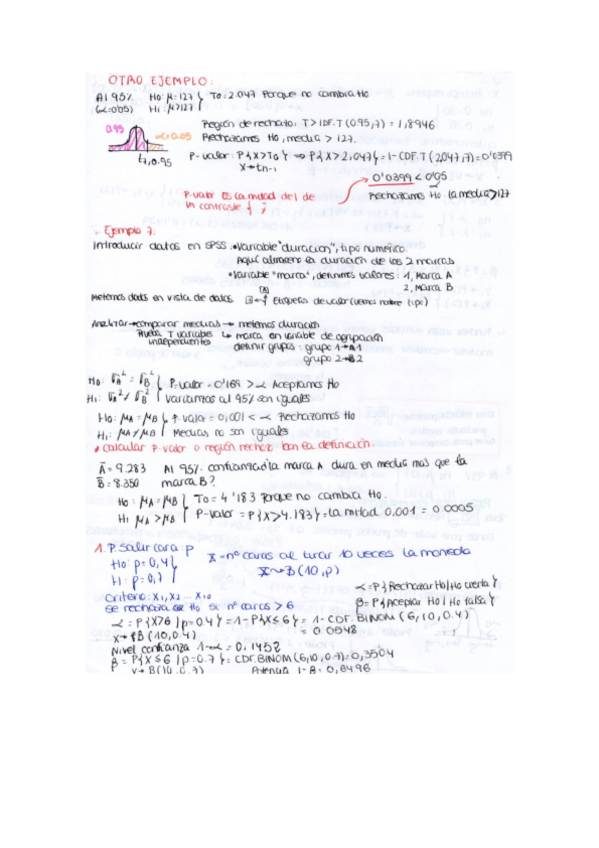 OTRO EJEMPLO:
Al 95% H₀: μ=127 } T₀: 2.047 Porque no cambia H₀
(α=0'05) H₁: μ>127
0.95 α=0.05 Región de rechazo: T > IDF.T (0.95,7) = 1,8946
Rechazamos H₀, media > 127.
t₇,0.95
P-valor: P{X>T₀} ⇒ P{X>2,047} = 1-CDF.T (2,047,7) = 0'0399
X→tₙ₋₁
0'0399 < 0'05
P-valor es la mitad del de un contraste { ;
Rechazamos H₀ la media>127
Ejemplo 7:
Introducir datos en SPSS: • Variable "duracion", tipo numérico.
Aquí almaceno la duración de las 2 marcas
• Variable "marca", definimos valores: 1, Marca A
2, Marca B
Metemos datos en vista de datos Etiquetas de valor (vemos nombre tipo)
Analizar→comparar medias→ metemos duración
Prueba T variables independientes ↳ marca en variable de agrupación
definir grupos: grupo 1→1
grupo 2→2
H₀: σA² = σB² } P-valor = 0'169 > α Aceptamos H₀
H₁: σA² ≠ σB² Varianzas al 95% son iguales
H₀: μA = μB } P-valor = 0,001 < α Rechazamos H₀
H₁: μA ≠ μB Medias no son iguales
• calcular p-valor o región rechazo con la definición.
Ā = 9.283 Al 95% confianza ¿la marca A dura en media más que la
B̄ = 8.350 marca B?
H₀: μA = μB } T₀ = 4'183 porque no cambia H₀.
H₁ μA > μB P-valor = P{X>4.183} = la mitad 0.001 = 0.0005
1. P.salir cara: p X = nº caras al tirar 10 veces la moneda
H₀: p = 0,4 } X→B(10,p)
H₁: p = 0,7
Criterio: X₁,X₂ ... X₁₀ α = P{Rechazar H₀/H₀ cierta}
Se rechaza H₀ si nº caras > 6 β = P{Aceptar H₀/H₀ falsa}
α = P{X>6 | p=0.4} = 1-P{X≤6} = 1-CDF.BINOM (6,10,0.4)
X→B(10,0.4) = 0.0548
Nivel confianza 1-α = 0,1452
β = P{X≤6 | p=0.7} = CDF.BINOM (6,10,0.7) = 0,3504
X→B(10,0.7) Potencia 1-β = 0,6496